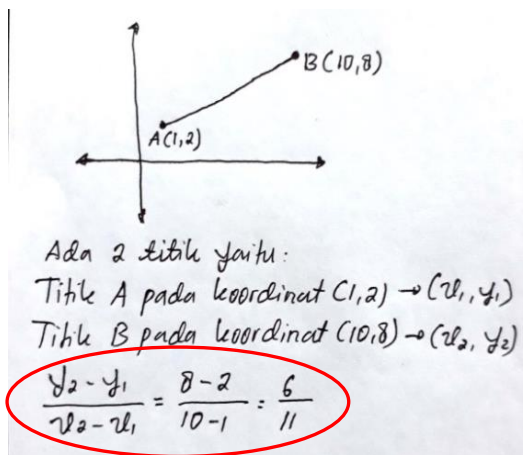 B(10,8)
A(1,2)
Ada 2 titik yaitu:
Titik A pada koordinat (1,2) → (x₁, y₁)
Titik B pada koordinat (10,8) → (x₂, y₂)
y₂ - y₁ / x₂ - x₁ = 8 - 2 / 10 - 1 = 6 / 11